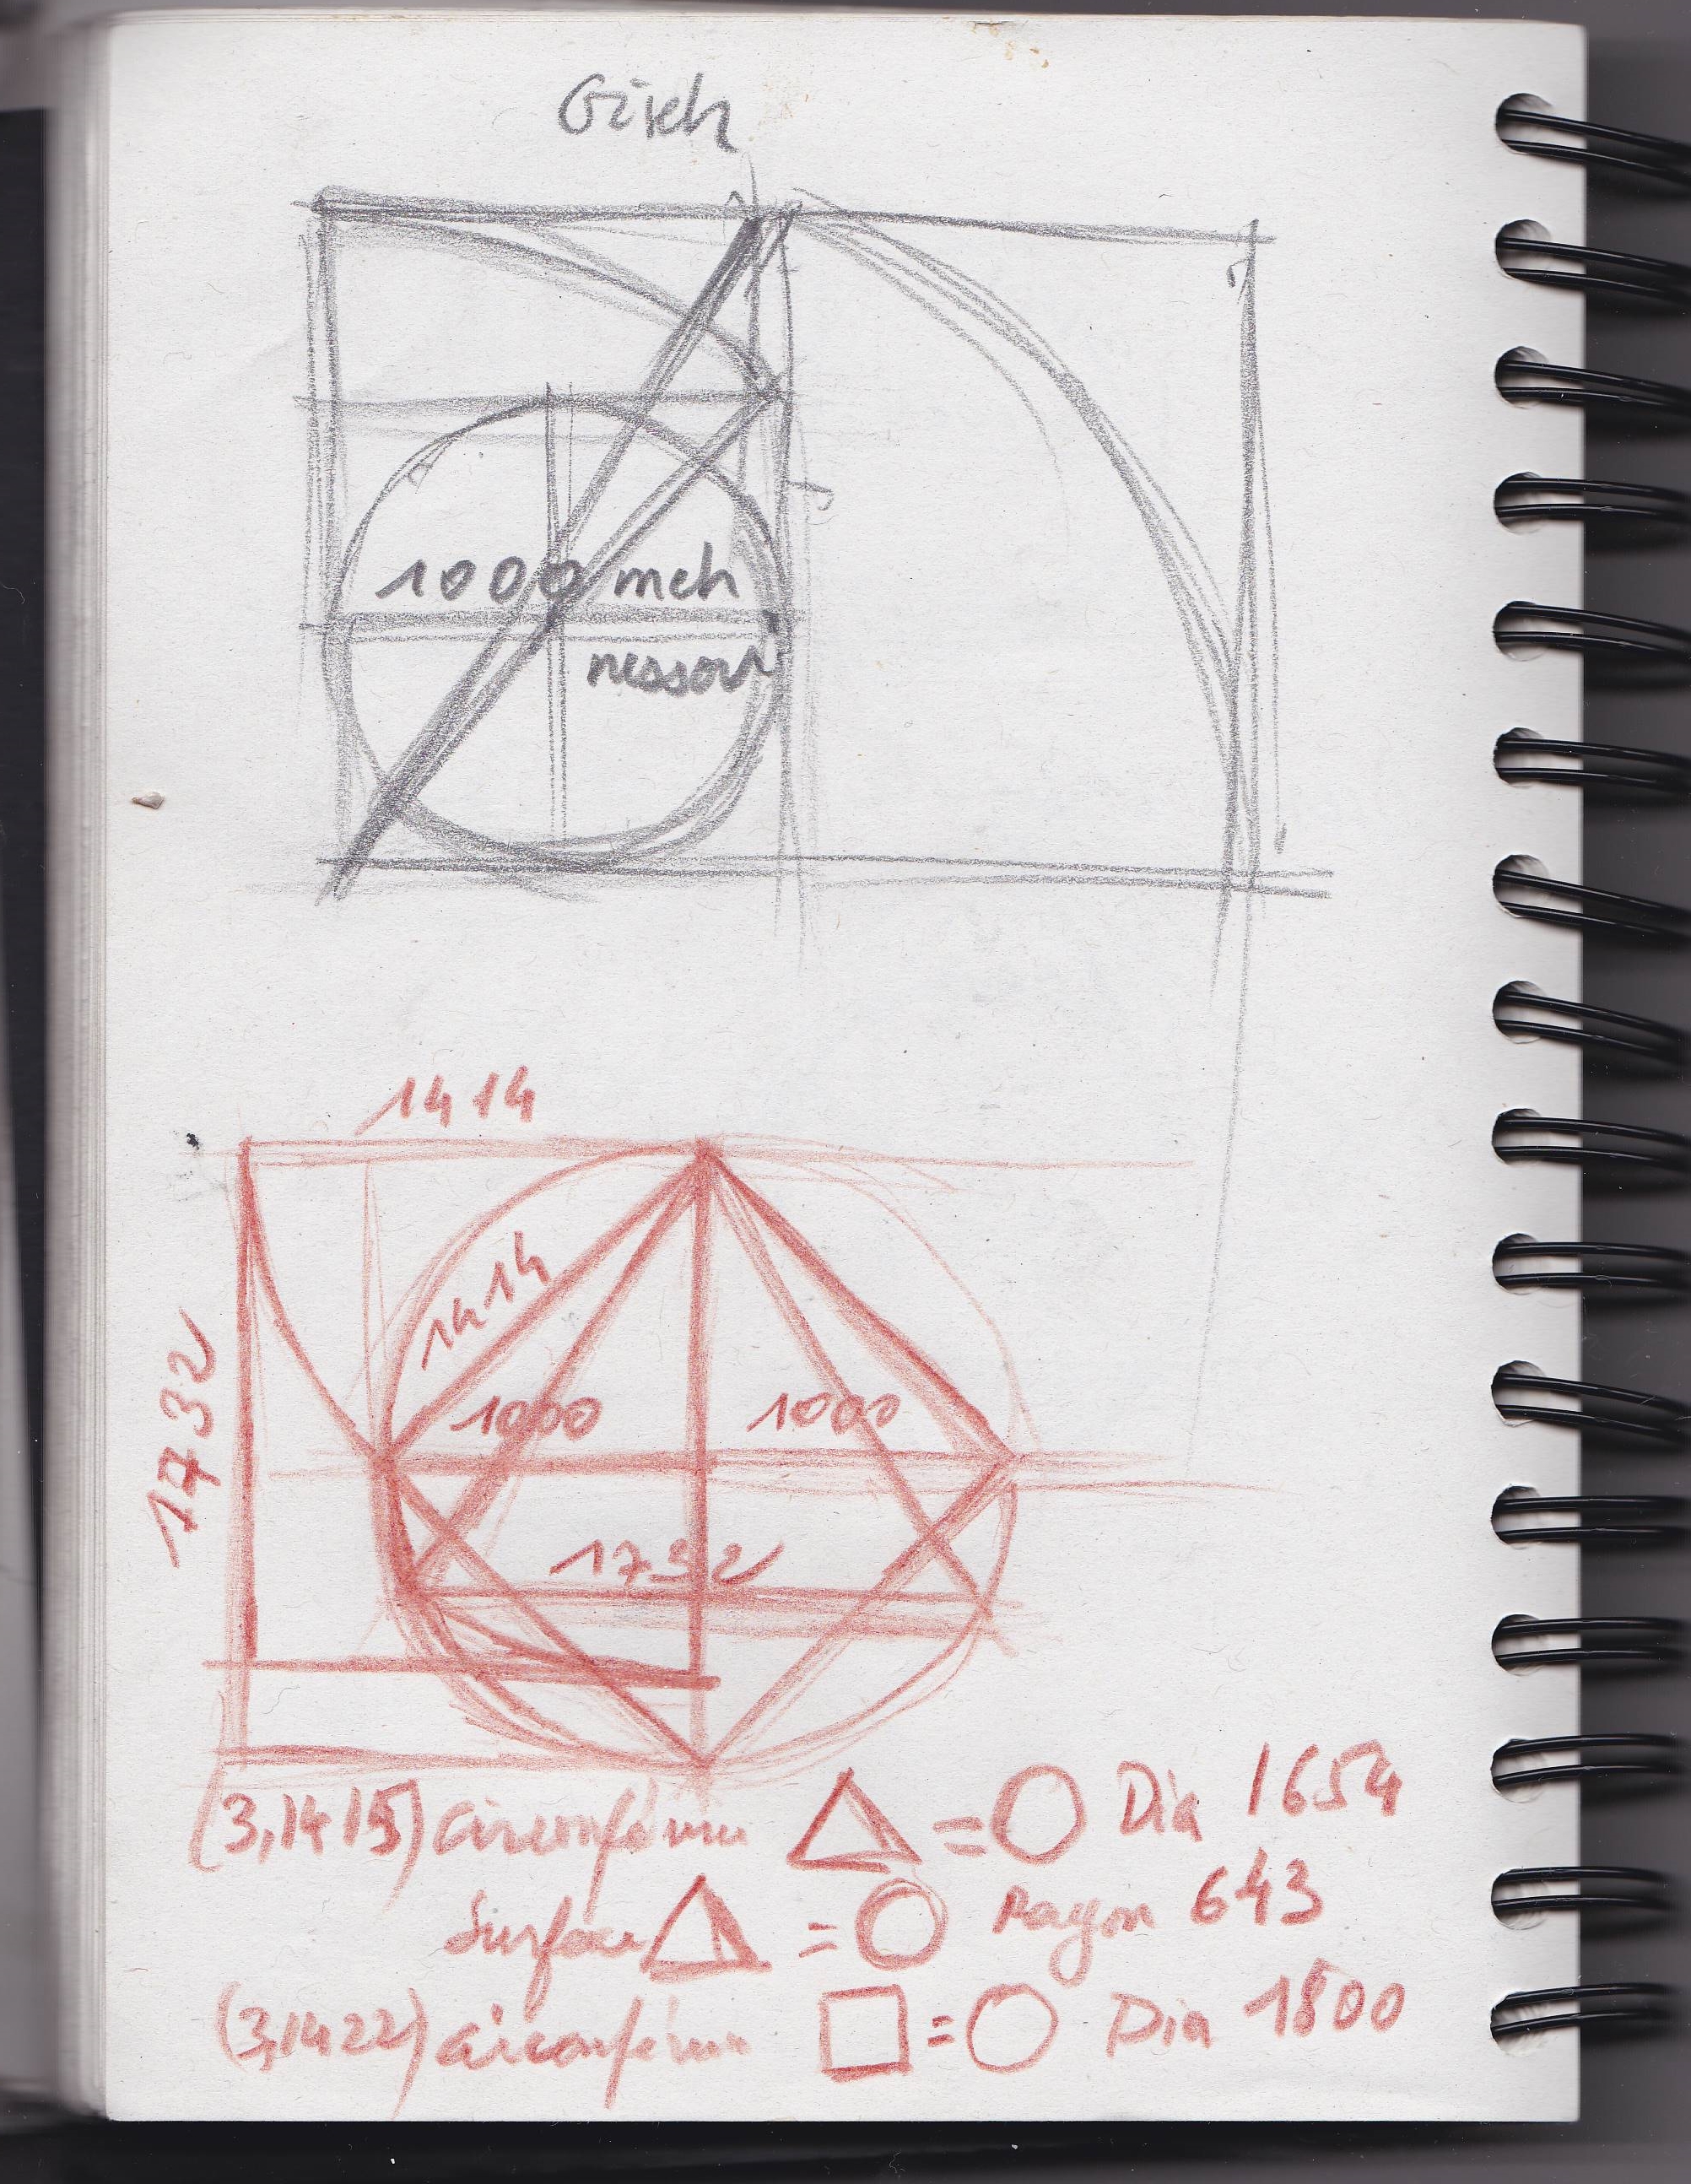 Gizeh
1000 meh
nessout
1414
1414
1732
1000 1000
1732
(3,1415) circonférence △ = ○ Dia 1654
Surface △ = ○ Rayon 643
(3,1422) circonférence □ = ○ Dia 1800